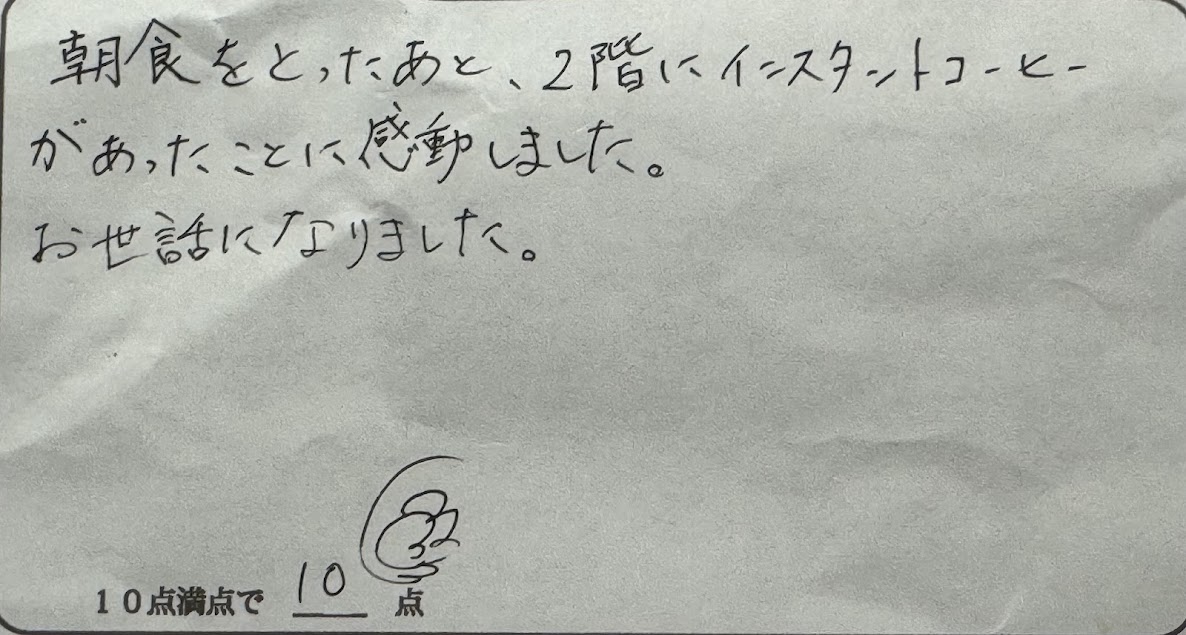 朝食をとったあと、2階にインスタントコーヒー
があったことに感動しました。
お世話になりました。
10点満点で 10 点